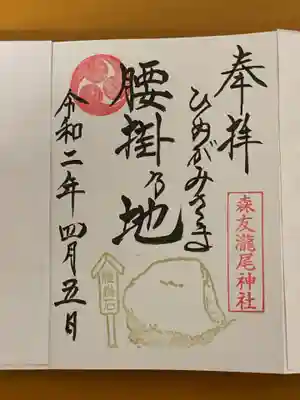 奉拝
ひめがみさま
腰掛乃地
令和二年四月五日
森友瀧尾神社
腰掛石